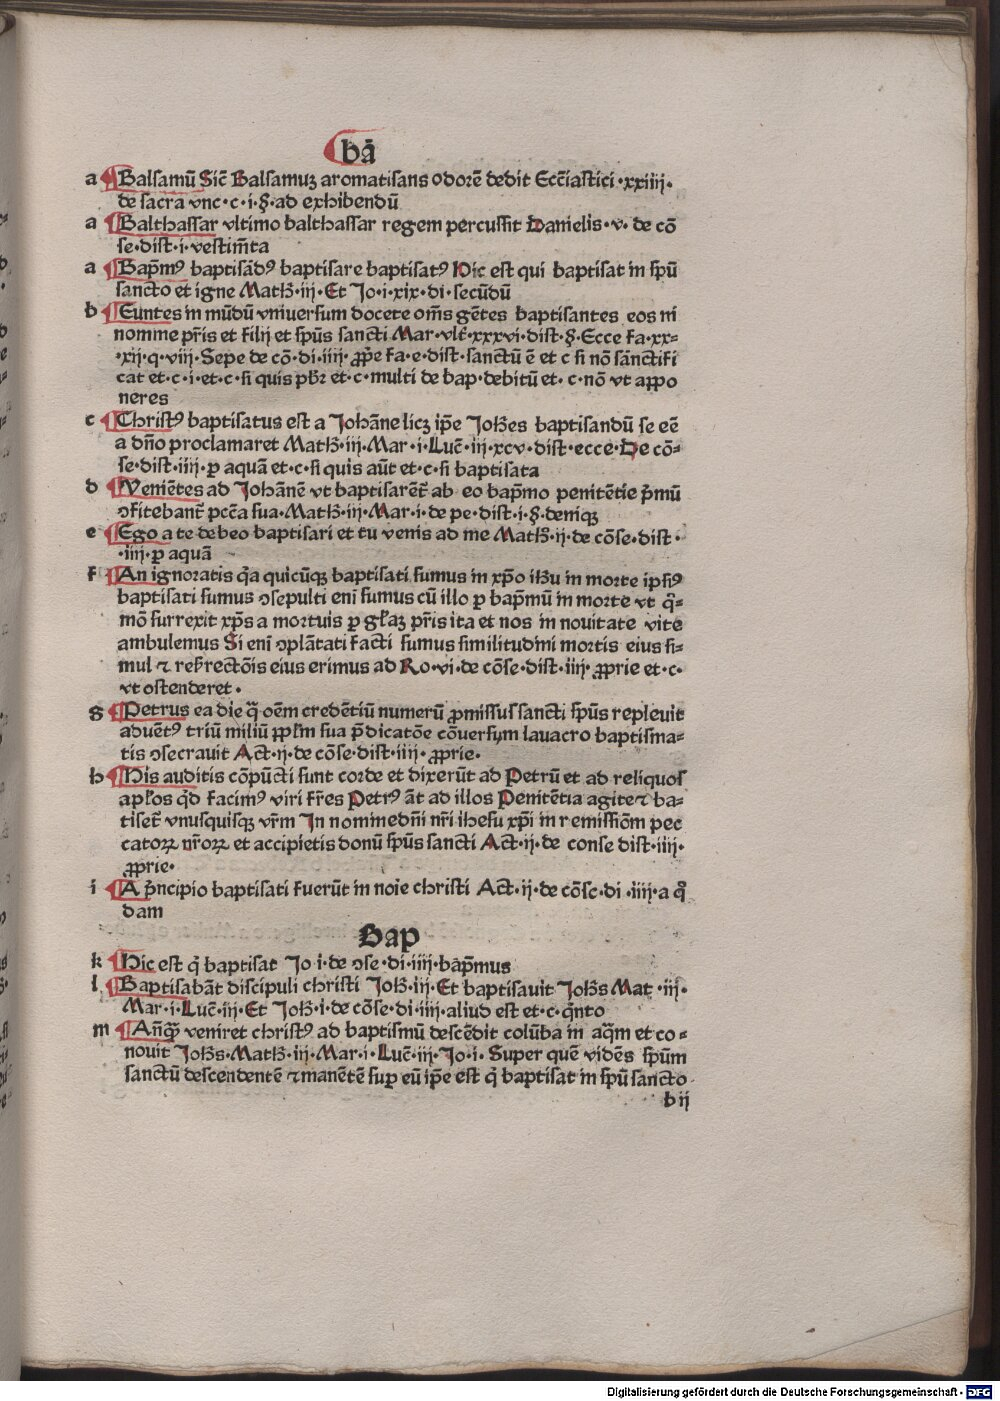 bā
a Balsamū Sic̄ Balsamuꝫ aromatisans odorē dedit Ecc̄iastici ·xxiiij·
de sacra vnc·c·i·§·ad exhibendū
a Balthassar vltimo balthassar regem percussit Danielis·v·de cō
se·dist·i·vestim̄ta
a Bap̄mꝰ baptisādꝰ baptisare baptisatꝰ Hic est qui baptisat in sp̄u
sancto et igne Math̄·iij·Et Jo·i·xix·di·secūdū
b Euntes in mūdū vniuersum docete om̄s gētes baptisantes eos ni
nomine pr̄is et filij et sp̄us sancti Mar·vlt̄·xxxvi·dist·§·Ecce fa·xx-
·xij·q·viij·Sepe de cō·di·iiij·ꝓpe fa·e·dist·sanctū ē et c si nō sānctifi
cat et·c·i·et·c·si quis pb̄r et·c·multi de bap·debitū et·c·nō vt appo
neres
c Christꝰ baptisatus est a Johāne licꝫ ip̄e Joh̄es baptisandū se eē
a dn̄o proclamaret Math̄·iij·Mar·i·Luc̄·iij·xcv·dist·ecce·De cō-
se·dist·iiij·ꝑ aquā et·c·si quis aūt et·c·si baptisata
d Veniētes ad Johānē vt baptisarēt̄ ab eo bap̄mo penitētie p̄mū
ↄfitebant̄ pcc̄a sua·Math̄·iij·Mar·i·de pe·dist·i·§·deniqꝫ
e Ego a te debeo baptisari et tu venis ad me Math̄·ij·de cōse·dist·
·iiij·ꝑ aquā
f An ignoratis q̄a quicūqꝫ baptisati sumus in xp̄o ih̄u in morte ipsiꝰ
baptisati sumus ↄsepulti enī sumus cū illo ꝑ bap̄mū in morte vt q̄-
mō surrexit xp̄s a mortuis ꝑ gl̄aꝫ pr̄is ita et nos in nouitate vite
ambulemus Si enī ↄplātati facti sumus similitudini mortis eius si-
mul ⁊ resr̄rectōis eius erimus ad Ro·vi·de cōse·dist·iiij·ꝓprie et·c·
vt ostenderet·
g Petrus ea die q̄ oēm credētiū numerū ꝓmissuſ sancti sp̄us repleuit
aduētꝰ triū miliū ppl̄m sua p̄dicatōe cōuersum lauacro baptisma-
tis ↄsecrauit Act·ij·de cōse·dist·iiij·ꝓprie·
h His auditis cōpūcti sunt corde et dixerūt ad Petrū et ad reliquoſ
apl̄os q̄d facimꝰ viri fr̄es Petrꝰ āt ad illos Penitētia agite ⁊ ba-
tiset̄ vnusquisqꝫ vr̄m In nomine dn̄i nr̄i ihesu xp̄i in remissiōm pec
catoꝝ vr̄oꝝ et accipietis donū sp̄us sancti Act·ij·de conse dist·iiij·
ꝓprie·
i A p̄ncipio baptisati fuerūt in noīe christi Act·ij·de cōse·di·iiij·a q̄
dam
Bap
k Hic est q̄ baptisat Jo i·de ↄse·di·iiij·bap̄mus
l Baptisabāt discipuli christi Joh̄·iij·Et baptisauit Joh̄s Mat·iij·
Mar·i·Luc̄·iij·Et Joh̄·i·de cōse·di·iiij·aliud est et·c·q̄nto
m An̄qꝫ̄ veniret christꝰ ad baptismū descēdit colūba in aq̄m et co-
nouit Joh̄s·Math̄·iij·Mar·i·Luc̄·iij·Jo·i·Super quē vidēs sp̄um
sanctū descendentē ⁊ manētē suꝑ eū ip̄e est q̄ baptisat in sp̄u sancto·
b ij
Digitalisierung gefördert durch die Deutsche Forschungsgemeinschaft - DFG